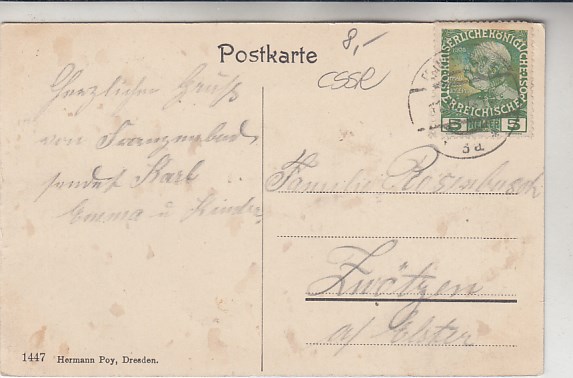 Postkarte
8,-
CSSR
KAISERLICHE KÖNIGLICHE
REICHISCHE
5 HELLER 5
3a.
Herzlicher Gruß
von Franzensbad
sendet Karl
Emma u Kinder
Familie Rosenbusch
Zwötzen
a/ Elster
1447 Hermann Poy, Dresden.